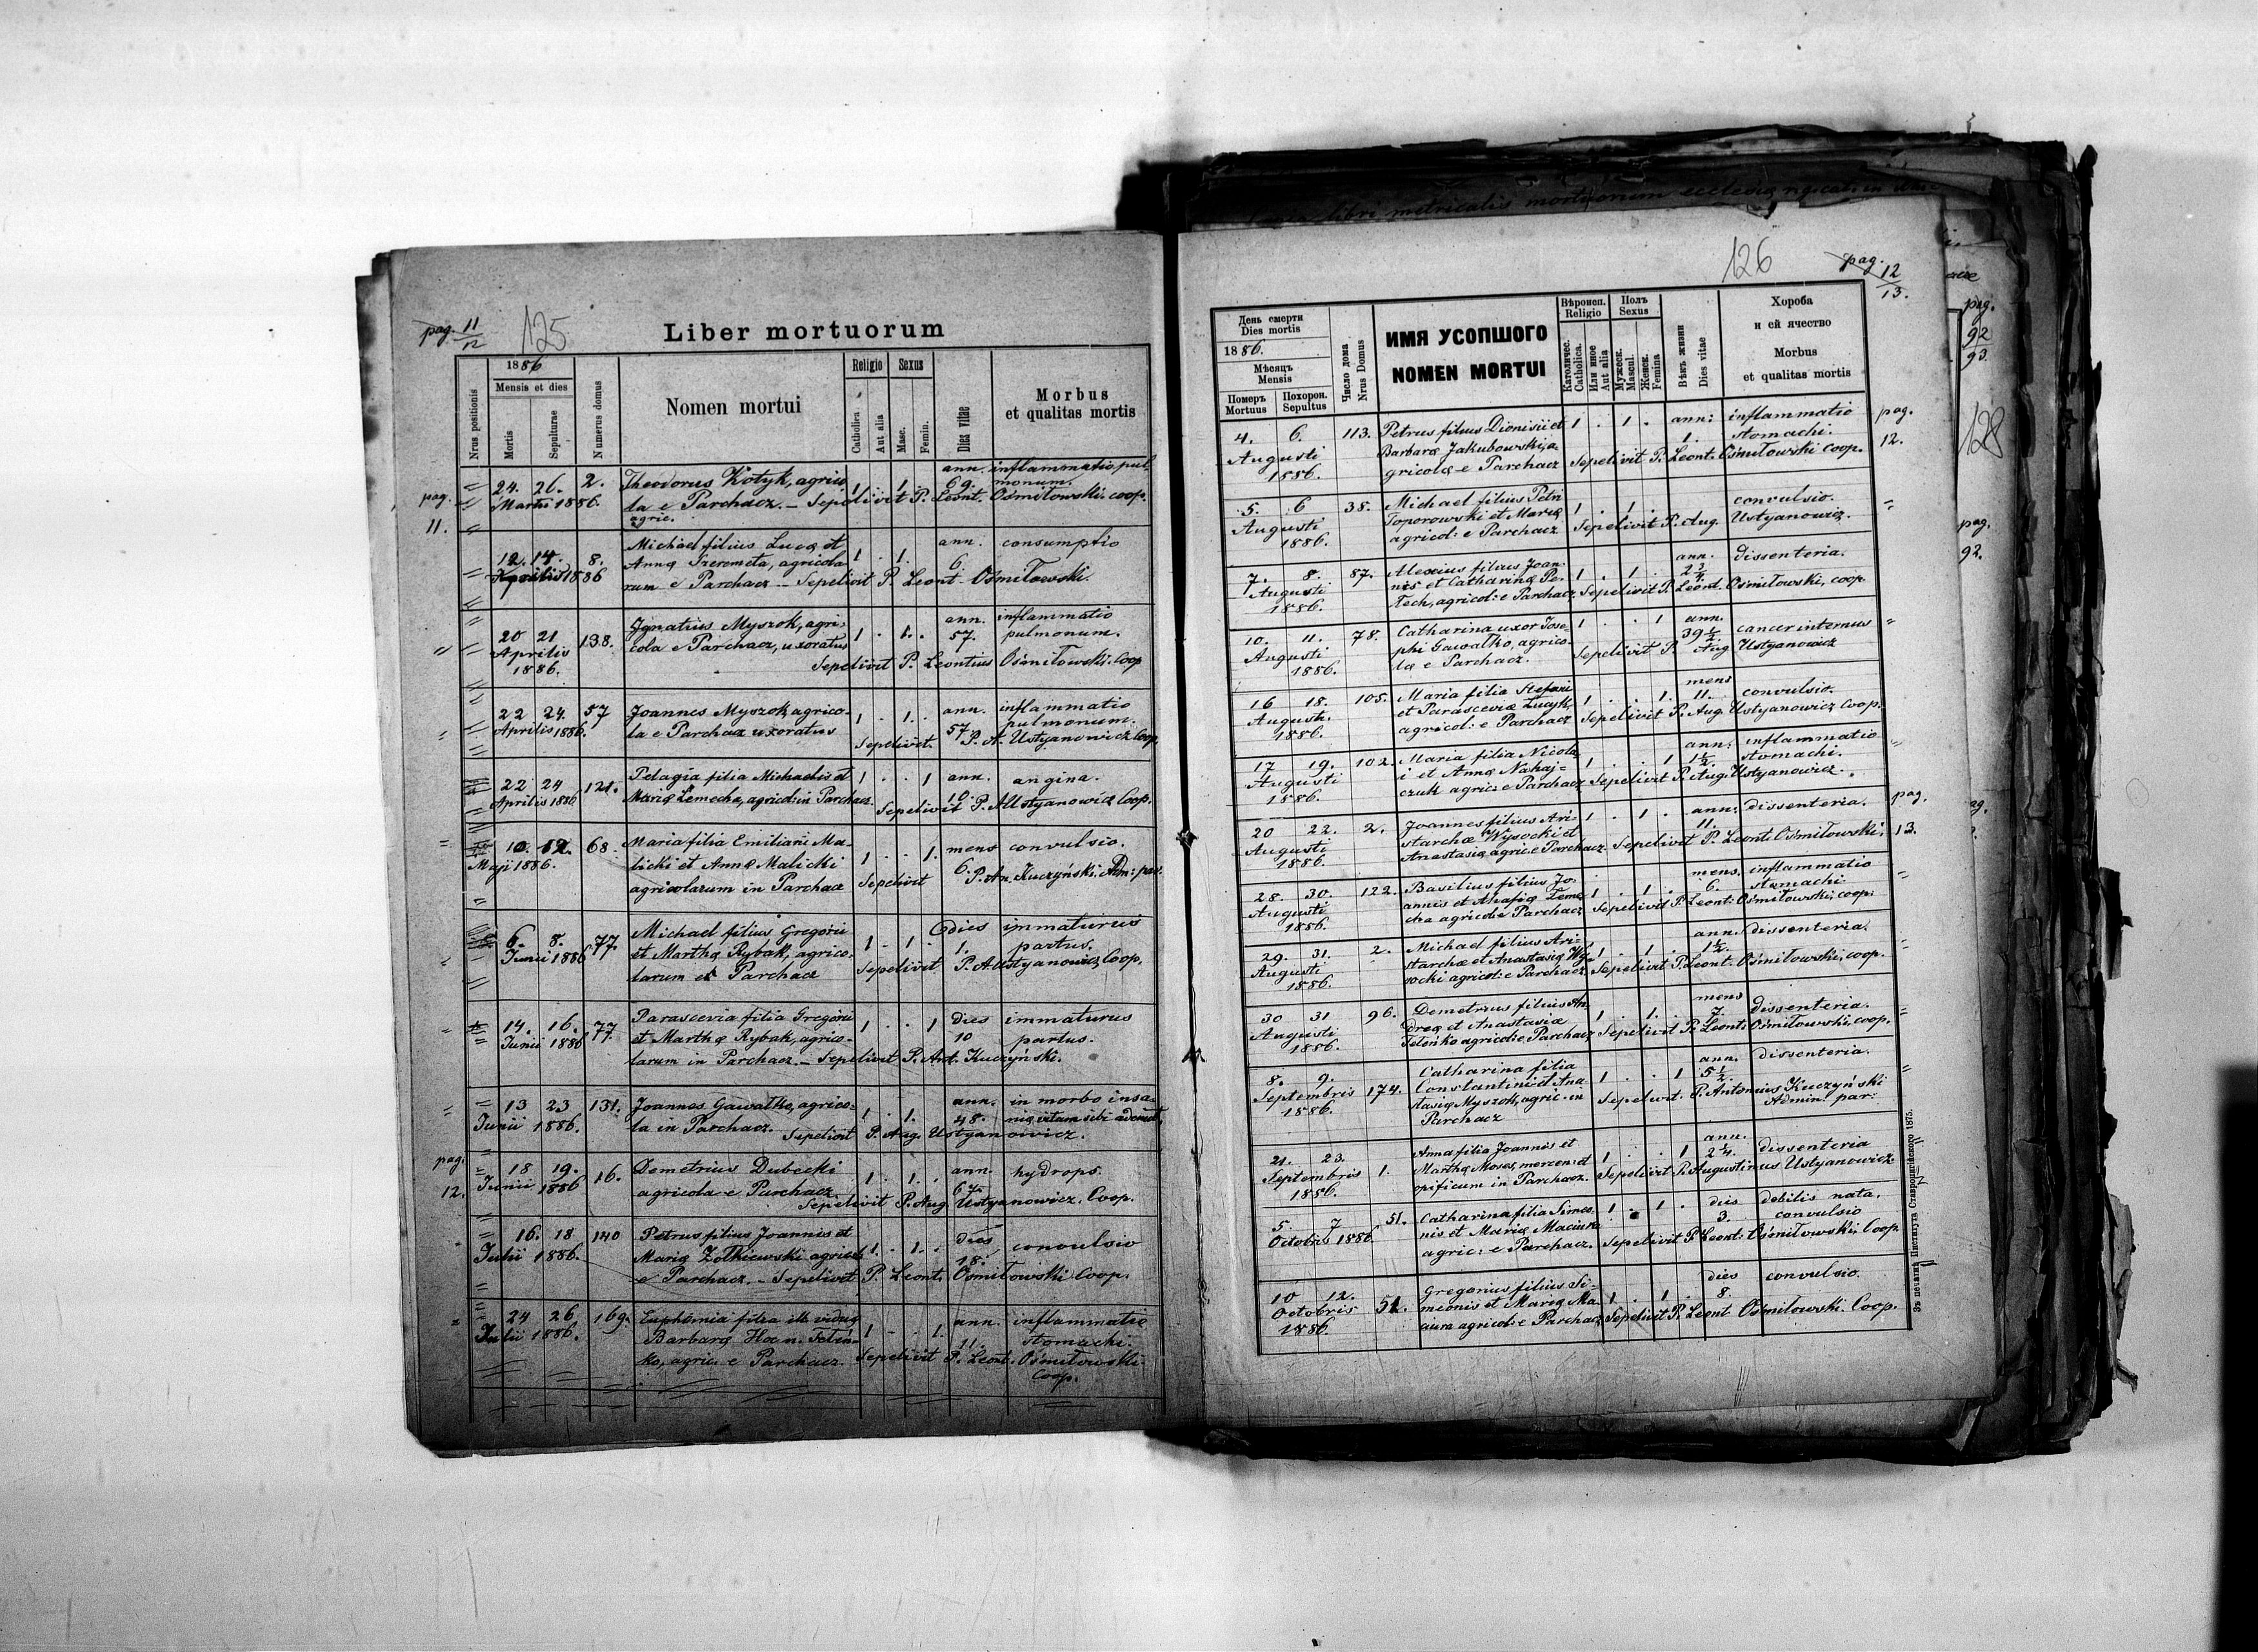 pag. 11/12
125
Liber mortuorum
Nrus positionis
1886
Mensis et dies
Mortis
Sepulturae
Numerus domus
Nomen mortui
Religio
Catholica
Aut alia
Sexus
Masc.
Femin.
Dies vitae
Morbus
et qualitas mortis
pag. 11.
24. 26. 2. Theodorus Kotyk, agrico ann. inflammatio pul-
Martii 1886. la e Parchacz. – 1 . 1 . 69. monum.
Sepelivit P. Leont. Ośmiłowski. coop.
agric.
12. 14. 8. Michael filius Lucæ et ann. consumptio
Aprilis 1886 Annæ Szeremeta, agricola 1 . 1 . 6.
rum e Parchacz – Sepelivit P. Leont. Ośmiłowski.
20 21 138. Ignatius Myszok, agri- ann. inflammatio
Aprilis cola e Parchacz, uxoratus 1 . 1 . 57. pulmonum.
1886. Sepelivit P. Leontius Ośmiłowski. Coop
22 24. 57 Joannes Myszok, agrico- ann. inflammatio
Aprilis 1886. la e Parchacz uxoratus 1 . 1 . 57 pulmonum.
Sepelivit. P. A. Ustyanowicz Coop.
22 24 121. Pelagia filia Michaelis et 1 . . 1 ann. angina.
Aprilis 1886 Mariæ Lemecha, agricol: in Parchacz. 10.
Sepelivit P. A Ustyanowicz Coop.
10. 12. 68. Maria filia Emiliani Ma- mens convulsio.
Maji 1886. licki et Annæ Malicki 1 . . 1. 6.
agricolarum in Parchacz Sepelivit P. An. Kuczyński. Adm: par.
6. 8. 77. Michael filius Gregorii dies immaturus
Junii 1886 et Marthæ Rybak, agrico- 1 . 1 . 1. partus.
larum e Parchacz Sepelivit P. A Ustyanowicz, Coop.
14. 16. 77. Parascevia filia Gregorii 1 . . 1 dies immaturus
Junii 1886 et Marthæ Rybak, agrico- 10 partus.
larum in Parchacz. – Sepelivit P. Ant. Kuczyński.
13 23 131. Joannes Gawałko, agrico- ann. in morbo insa-
Junii 1886. la in Parchacz. 1 . 1 . 48. niæ vitam sibi ademit
Sepelivit P. Aug. Ustyanowicz.
pag. 12.
18 19. 16. Demetrius Dubecki ann. hydrops.
Junii 1886 agricola e Parchacz. 1 . 1 .
Sepelivit P. Aug. Ustyanowicz. Coop.
16. 18 140 Petrus filius Joannis et dies
Julii 1886. Mariæ Żołkiewski agricol: 1 . 1 . 18. convulsio
e Parchacz. – Sepelivit P. Leont. Ośmiłowski Coop.
24 26 169. Euphemia filia viduæ ann. inflammatio
Julii 1886. Barbaræ 1 . . 1. 11. stomachi.
ko, agric: e Parchacz Sepelivit P. Leont. Ośmiłowski
Coop.
126
pag. 12/13.
День смерти
Dies mortis
1886.
Мѣсяць
Mensis
Померъ
Mortuus
Похорон.
Sepultus
Число дома
Nrus Domus
ИМЯ УСОПШОГО
NOMEN MORTUI
Вѣроисп.
Religio
Католичес.
Catholica.
Или иное
Aut alia
Полъ
Sexus
Мужеск.
Mascul.
Женск.
Femina
Вѣкъ жизни
Dies vitae
Хороба
и ей ячество
Morbus
et qualitas mortis
4. 6. 113. Petrus filius Dionisii et 1 . 1 . ann: inflammatio pag.
Augusti Barbaræ Jakubowski, a- 1. stomachi. 12.
1886. gricolæ e Parchacz Sepelivit P. Leont. Ośmiłowski coop.
5. 6 38. Michael filius Petri 1 . 1 . convulsio.
Augusti Toporowski et Mariæ
1886. agricol: e Parchacz Sepelivit P. Aug. Ustyanowicz.
7. 8. 87. Alexius filius Joan- 1 . 1 . ann. dissenteria.
Augusti nis et Catharinæ Pe- 2 3/4.
1886. tech, agricol: e Parchacz. Sepelivit P. Leont. Ośmiłowski, coop.
10. 11. 78. Catharina uxor Jose- 1 . . 1 ann. cancer internus
Augusti phi Gawałko, agrico- 39 1/2
1886. læ e Parchacz. Sepelivit P. Aug Ustyanowicz
16 18. 105. Maria filia Stefani 1 . . 1. mens convulsio.
Augusti. et Parasceviæ Lucyk, 11.
1886. agricol: e Parchacz Sepelivit P. Aug. Ustyanowicz Coop.
17 19. 102. Maria filia Nicola- 1 . . 1 ann. inflammatio
Augusti i et Annæ Nahaj- 1 1/2. stomachi.
1886. czuk agric: e Parchacz Sepelivit P. Aug. Ustyanowicz.
20 22. 2. Joannes filius Ari- 1 . 1 . ann. dissenteria. pag.
Augusti starchæ Wysocki et 11. 13.
1886. Anastasiæ agric. e Parchacz. Sepelivit P. Leont. Ośmiłowski.
28. 30. 122. Basilius filius Jo- 1 . 1 . mens. inflammatio
Augusti annis et Ahafiæ Leme- 6. stomachi
1886. cha agricol: e Parchacz Sepelivit P. Leont: Ośmiłowski, coop:
29. 31. 2. Michael filius Ari- 1 . 1 . ann. dissenteria.
Augusti starchæ et Anastasiæ Wy- 1 1/2.
1886. socki agricol: e Parchacz. Sepelivit P. Leont. Ośmiłowski, coop.
30 31 96. Demetrius filius An- 1 . 1 . mens dissenteria.
Augusti dreæ et Anastasiæ 7.
1886. Feteńko agricol: e Parchacz Sepelivit P. Leont: Ośmiłowski, coop.
8. 9. 174. Catharina filia 1 . . 1 ann. dissenteria.
Septembris Constantini et Ana- 5 1/2.
1886. stasiæ Myszok, agric. in Sepelivit. P. Antonius Kuczyński
Parchacz Admin. par:
21. 23. 1. Anna filia Joannis et 1 . . 1 ann. dissenteria
Septembris Marthæ Moses, mercen: et 2 1/4.
1886. opificum in Parchacz. Sepelivit P. Augustinus Ustyanowicz.
5. 7 51. Catharina filia Simeo- 1 . 1 . dies debilis nata.
Octobris 1886 nis et Mariæ Maciura 3. convulsio
agric: e Parchacz. Sepelivit P. Leont: Ośmiłowski, Coop.
10 12. 51. Gregorius filius Si- 1 . 1 . dies convulsio.
Octobris meonis et Mariæ Ma- 8.
1886. ciura agricol: e Parchacz Sepelivit P. Leont Ośmiłowski. Coop.
Зъ печатнѣ Института Ставропигійского 1875.
pag.
92
93.
128
pag.
92.